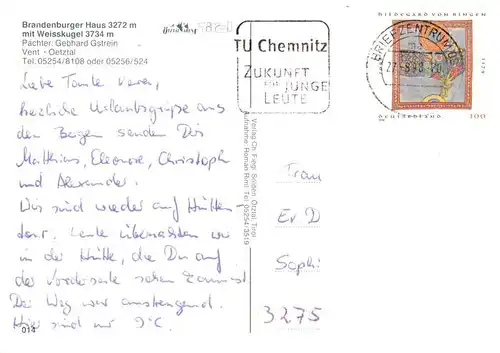 Brandenburger Haus 3272 m
mit Weisskugel 3734 m
Pächter: Gebhard Gstrein
Vent - Oetztal
Tel. 05254/8108 oder 05256/524
TU Chemnitz
ZUKUNFT
FÜR JUNGE
LEUTE
BRIEFZENTRUM
HILDEGARD VON BINGEN
DEUTSCHLAND 100
Liebe Tante Vera,
herzliche Urlaubsgrüsse aus
den Bergen senden Dir
Matthias, Eleonore, Christoph
und Alexander.
Wir sind wieder auf Hütten-
tour. Heute übernachten wir
in der Hütte, die Du auf
der Vorderseite sehen kannst
Der Weg war anstrengend.
Hier sind nur 9°C.
014
Verlag Ch. Fiegl, Sölden, Oetztal, Tirol
Aufnahme: Roman Riml, Tel. 05254/3519
Frau
Er D
Sophi
3275